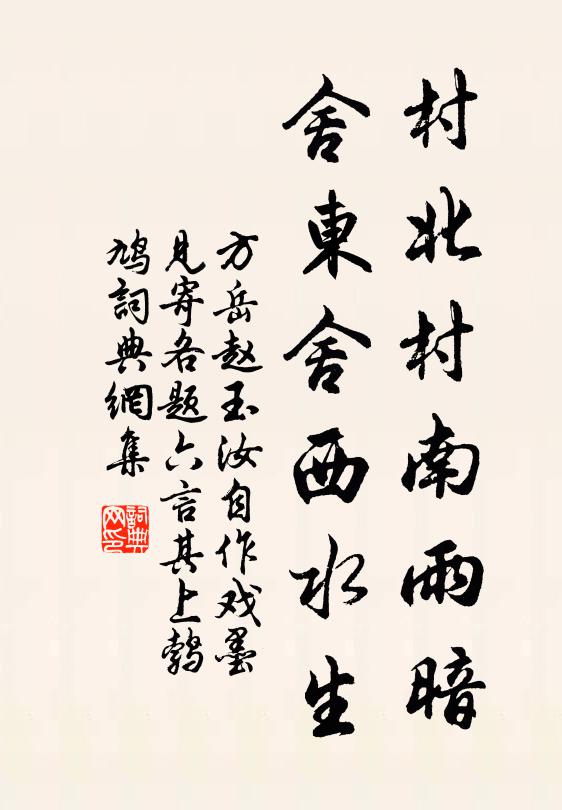 村北村南雨暗
舍東舍西水生
方岳赵玉汝自作戏墨
见寄各题六言其上鹁
鸠詞典網集
詞典
网印